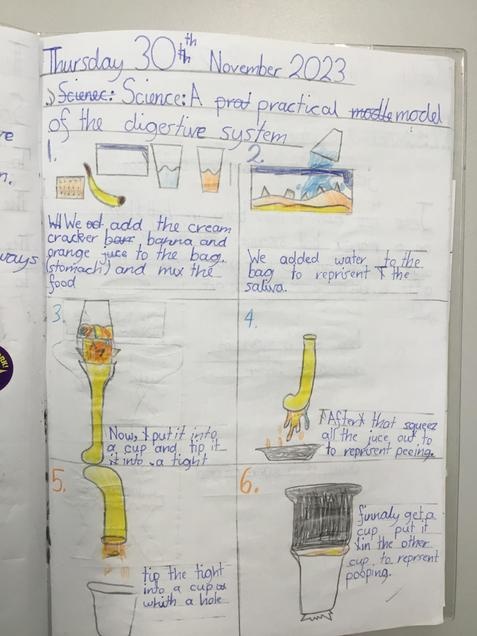 Thursday 30th th November 2023
Science: Science: A prat practical modle model
of the digestive system
1.
We add the cream
cracker banna and
orange juce to the bag.
(stomach) and mix the
food
2.
We added water to the
bag to reprisent the
saliva.
3.
Now, I put it into
a cup and tip it
it into a tight
4.
After that squeez
all the juce out to
to represent peeing.
5.
tip the tight
into a cup
which a hole
6.
finnaly get a
cup put it
in the other
cup to reprsent
pooping.
ways